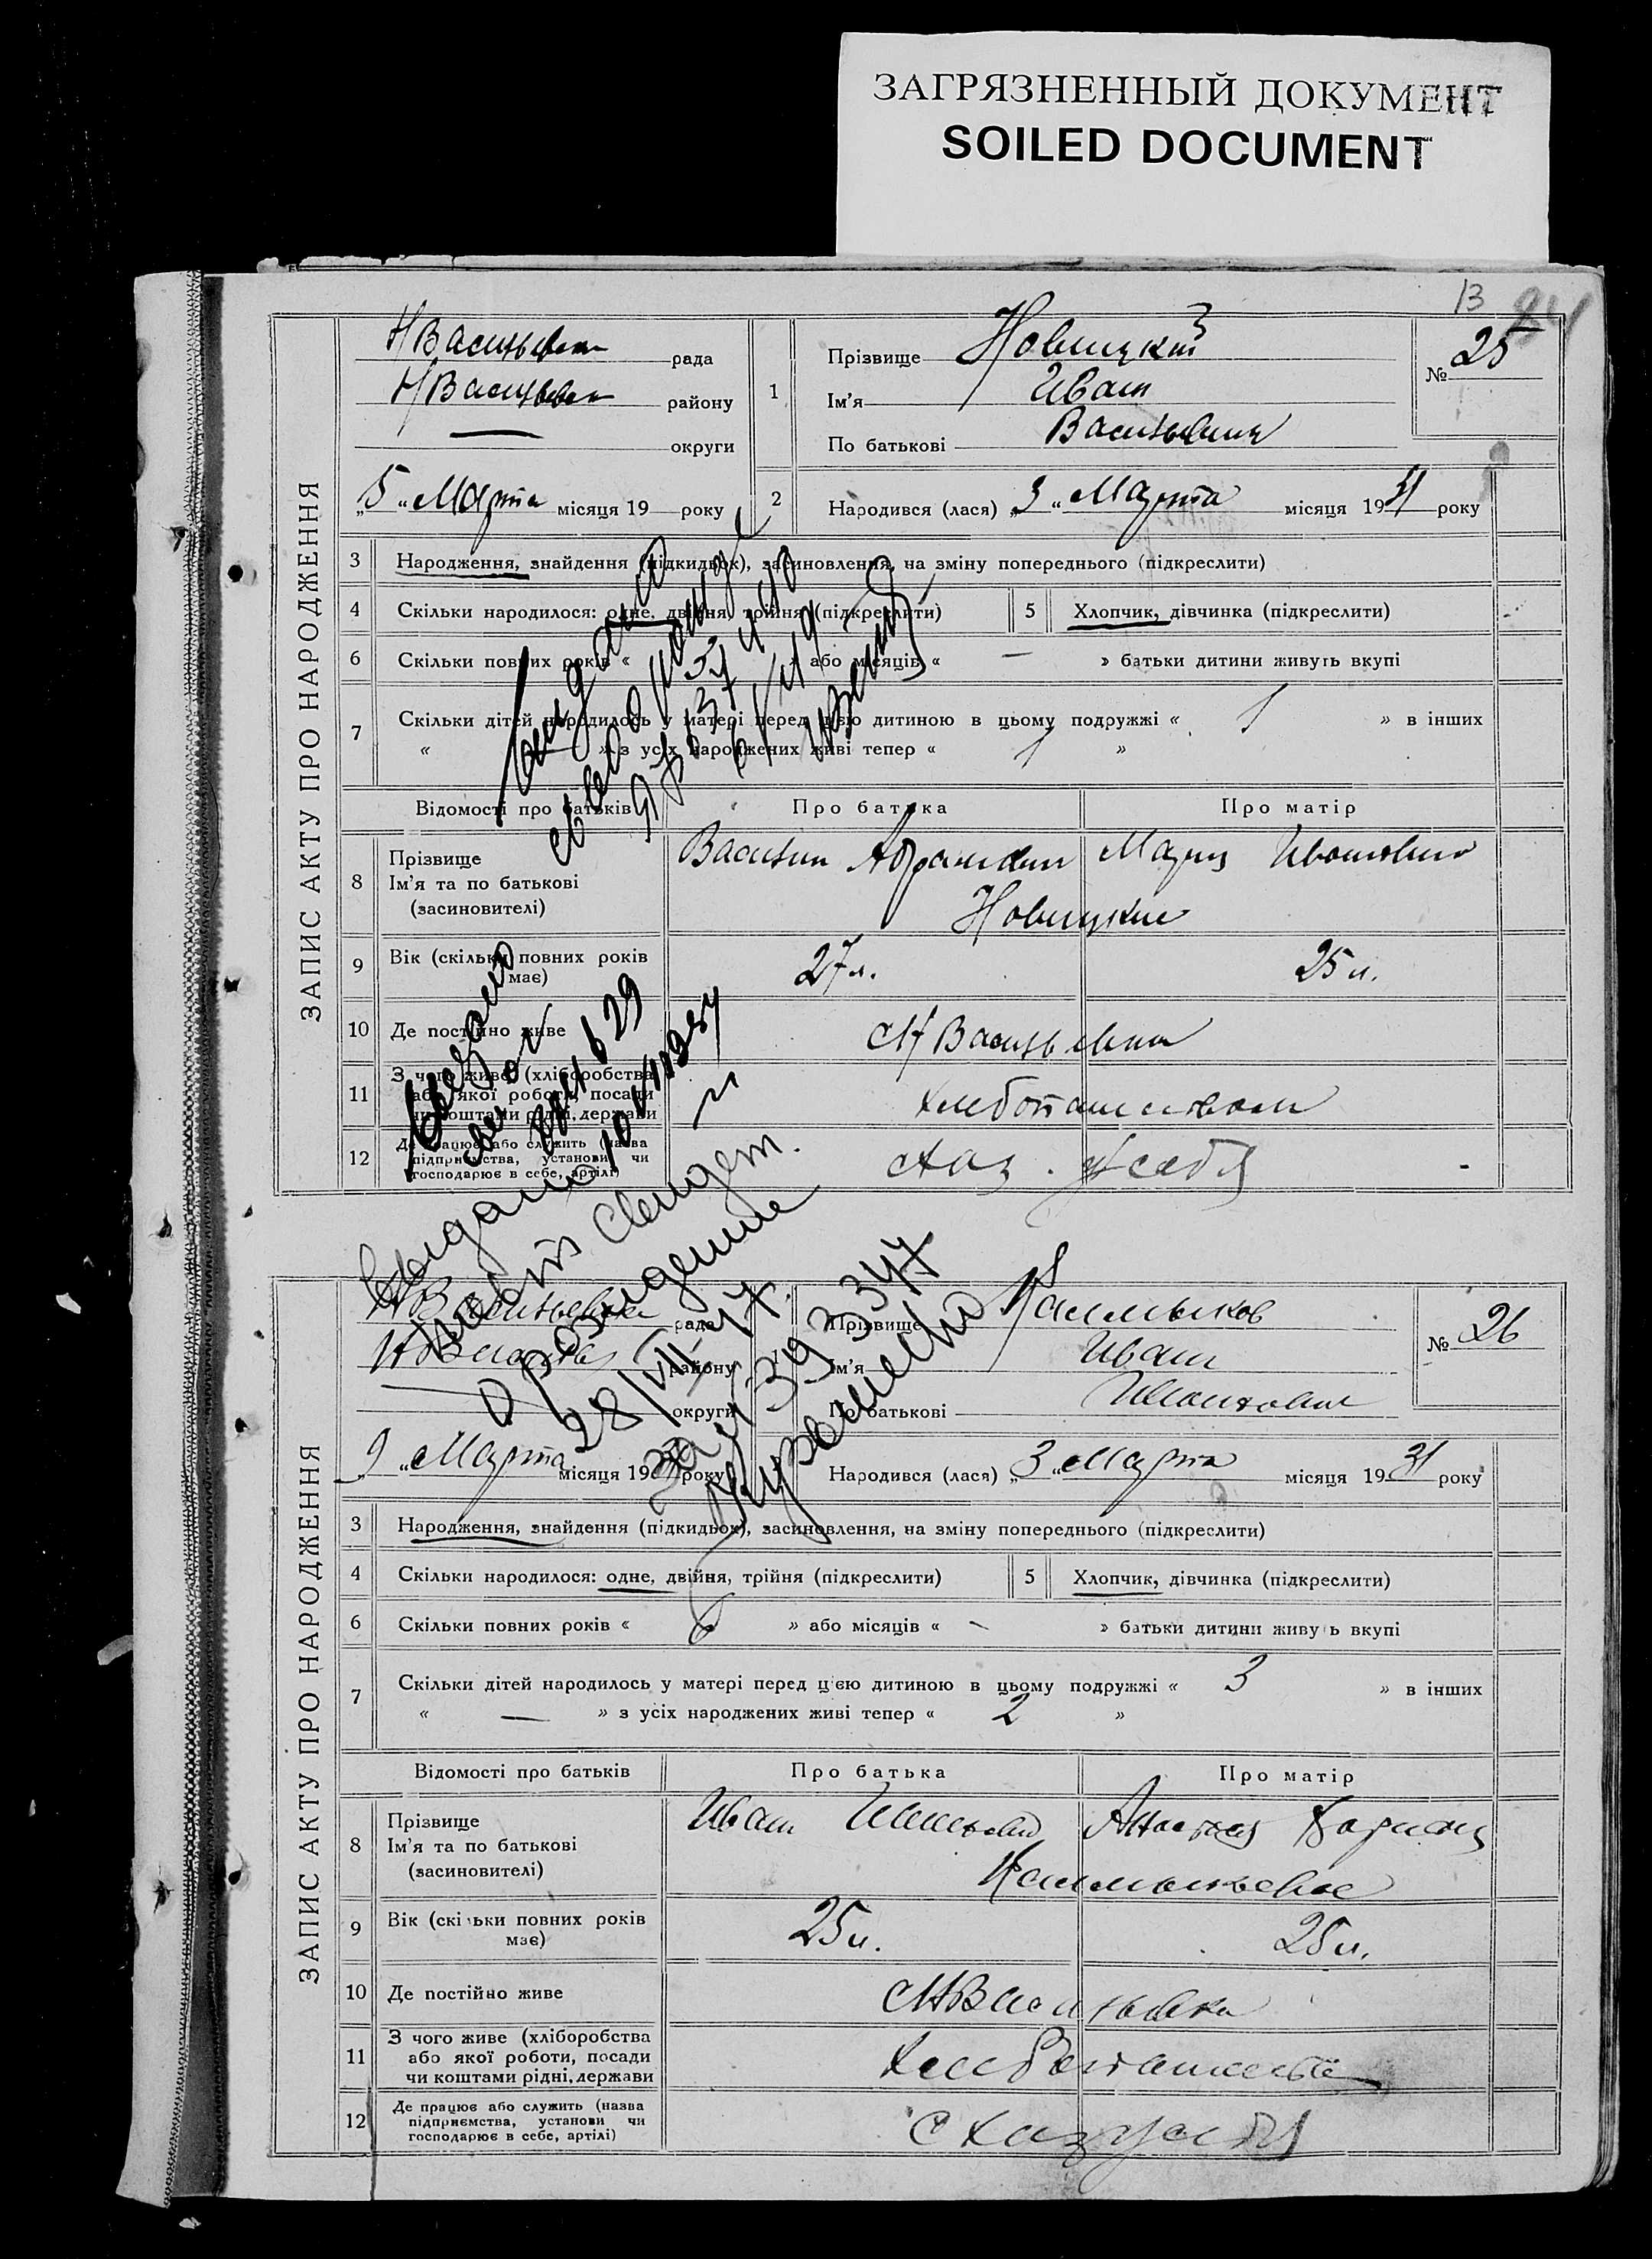 ЗАГРЯЗНЕННЫЙ ДОКУМЕНТ
SOILED DOCUMENT
13
ЗАПИС АКТУ ПРО НАРОДЖЕННЯ
НВасильевка рада
НВасильев району
округи
„5“ Марта місяця 19 року
1
Прізвище Новицкий
Ім’я Иван
По батькові Васильевич
№ 25
2 Народився (лася) „3“ Марта місяця 1931 року
3 Народження, знайдення (підкидьок), засиновлення, на зміну попереднього (підкреслити)
4 Скільки народилося: одне, двійня, трійня (підкреслити)
5 Хлопчик, дівчинка (підкреслити)
6 Скільки повних років « » або місяців « — » батьки дитини живуть вкупі
7 Скільки дітей народилось у матері перед цією дитиною в цьому подружжі « 1 » в інших
« » з усіх народжених живі тепер « 1 »
Відомості про батьків Про батька Про матір
8 Прізвище
Ім’я та по батькові
(засиновителі)
Василий Абрамович
Мария Ивановна
Новицкие
9 Вік (скільки повних років має) 27 л. 25 л.
10 Де постійно живе с Н Васильевка
11 З чого живе (хліборобства
або якої роботи, посади
чи коштами рідні, держави
Хлебопашеством
12 Де працює або служить (назва
підприємства, установи чи
господарює в себе, артілі)
с хоз. у себя
Выдано
Выдано
Выдано
повт свидет.
о рождении
28/VII 47
393347
ЗАПИС АКТУ ПРО НАРОДЖЕННЯ
НВасильевка рада
НВасильев району
округи
„9“ Марта місяця 1931 року
1
Прізвище Калмыков
Ім’я Иван
По батькові Иванович
№ 26
Народився (лася) „3“ Марта місяця 1931 року
3 Народження, знайдення (підкидьок), засиновлення, на зміну попереднього (підкреслити)
4 Скільки народилося: одне, двійня, трійня (підкреслити)
5 Хлопчик, дівчинка (підкреслити)
6 Скільки повних років « 6 » або місяців « — » батьки дитини живуть вкупі
7 Скільки дітей народилось у матері перед цією дитиною в цьому подружжі « 3 » в інших
« — » з усіх народжених живі тепер « 2 »
Відомості про батьків Про батька Про матір
8 Прізвище
Ім’я та по батькові
(засиновителі)
Иван
Калмыковы
9 Вік (скільки повних років має) 25 л. 25 л.
10 Де постійно живе с НВасильевка
11 З чого живе (хліборобства
або якої роботи, посади
чи коштами рідні, держави
Хлебопашество
12 Де працює або служить (назва
підприємства, установи чи
господарює в себе, артілі)
с хоз у себя